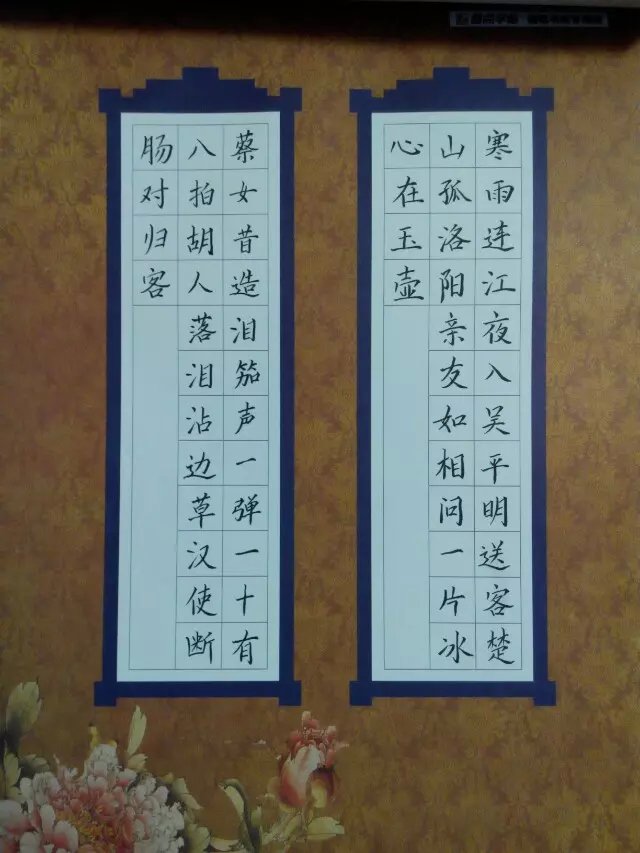 寒雨连江夜入吴平明送客楚
山孤洛阳亲友如相问一片冰
心在玉壶
蔡女昔造泪笳声一弹一十有
八拍胡人落泪沾边草汉使断
肠对归客